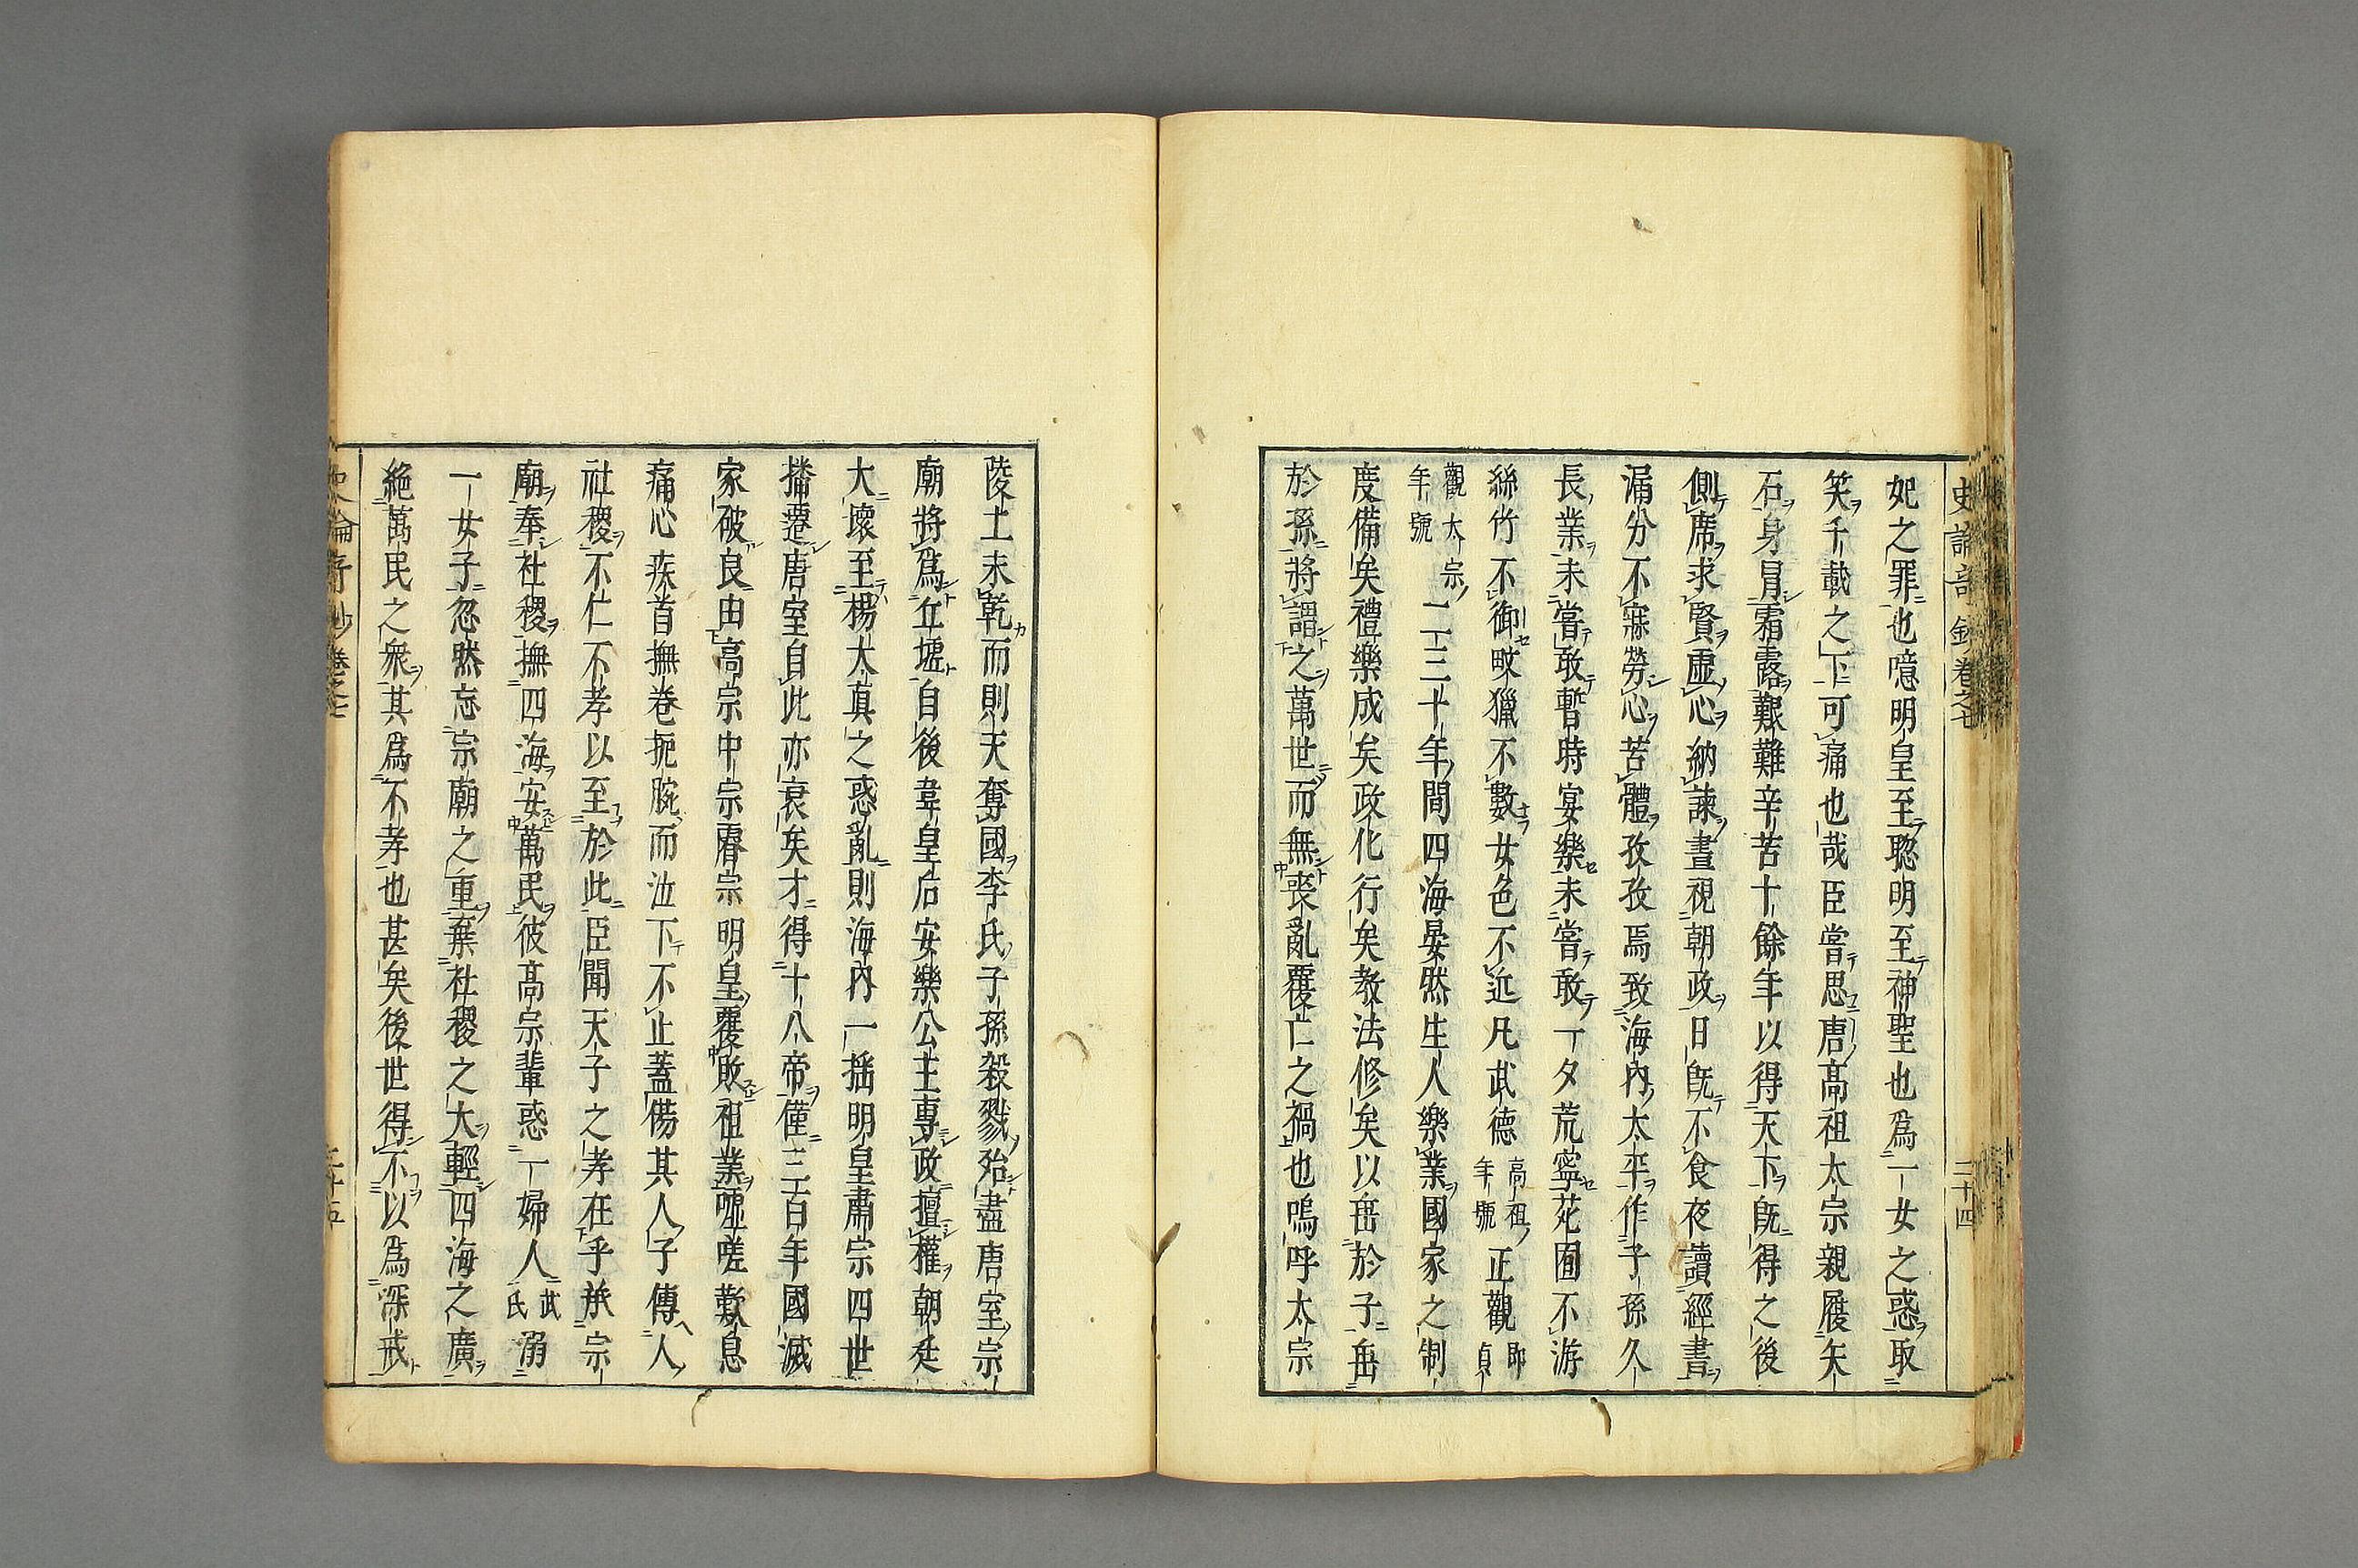 妃之罪也噫明皇至聰明至神聖也爲一女之惑取
笑千載之下可痛也哉臣嘗思唐高祖太宗親履矢
石身冐霜露艱難辛苦十餘年以得天下旣得之後
側席求賢虛心納諫晝視朝政日旣不食夜讀經書
漏分不寐勞心苦體孜孜焉致海內太平作子孫久
長業未嘗敢暫時宴樂未嘗敢一夕荒寧苑囿不游
絲竹不御畋獵不數女色不近凡武德高祖年號正觀即貞
觀太宗年號一二三十年間四海晏然生人樂業國家之制
度備矣禮樂成矣政化行矣敎法修矣以畱於子畱
於孫將謂之萬世而無喪亂覆亡之禍也嗚呼太宗
陵土未乾而則天奪國李氏子孫殺戮殆盡唐室宗
廟將爲丘墟自後韋皇后安樂公主專政擅權朝廷
大壞至楊太眞之惑亂則海內一揺明皇肅宗四世
播遷唐室自此亦衰矣才得十八帝僅三百年國滅
家破良由高宗中宗睿宗明皇覆敗祖業噓嗟歎息
痛心疾首撫卷扼腕而泣下不止蓋傷其人子傳人
社稷不仁不孝以至於此臣聞天子之孝在乎祇宗
廟奉社稷撫四海安萬民彼高宗輩惑一婦人武氏溺
一女子忽然忘宗廟之重棄社稷之大輕四海之廣
絶萬民之衆其爲不孝也甚矣後世得不以爲深戒
史論奇鈔卷之七
二十四
卷之七
二十五